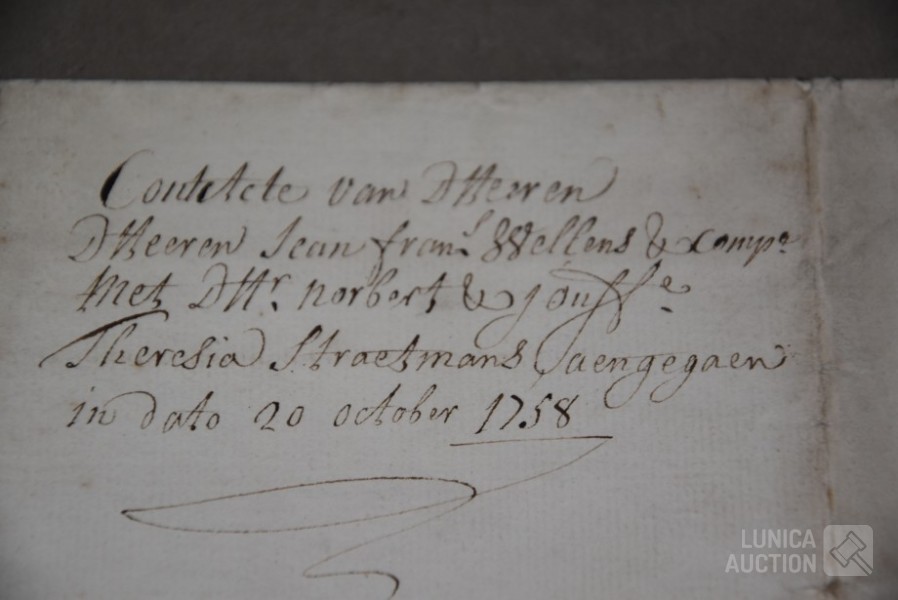 Contracte van DHeeren
DHeeren Jean fran.s Wellens & comp.e
Met DHr. norbert & jouff.e
Theresia Straetmans aengegaen
in dato 20 october 1758
LUNICA
AUCTION